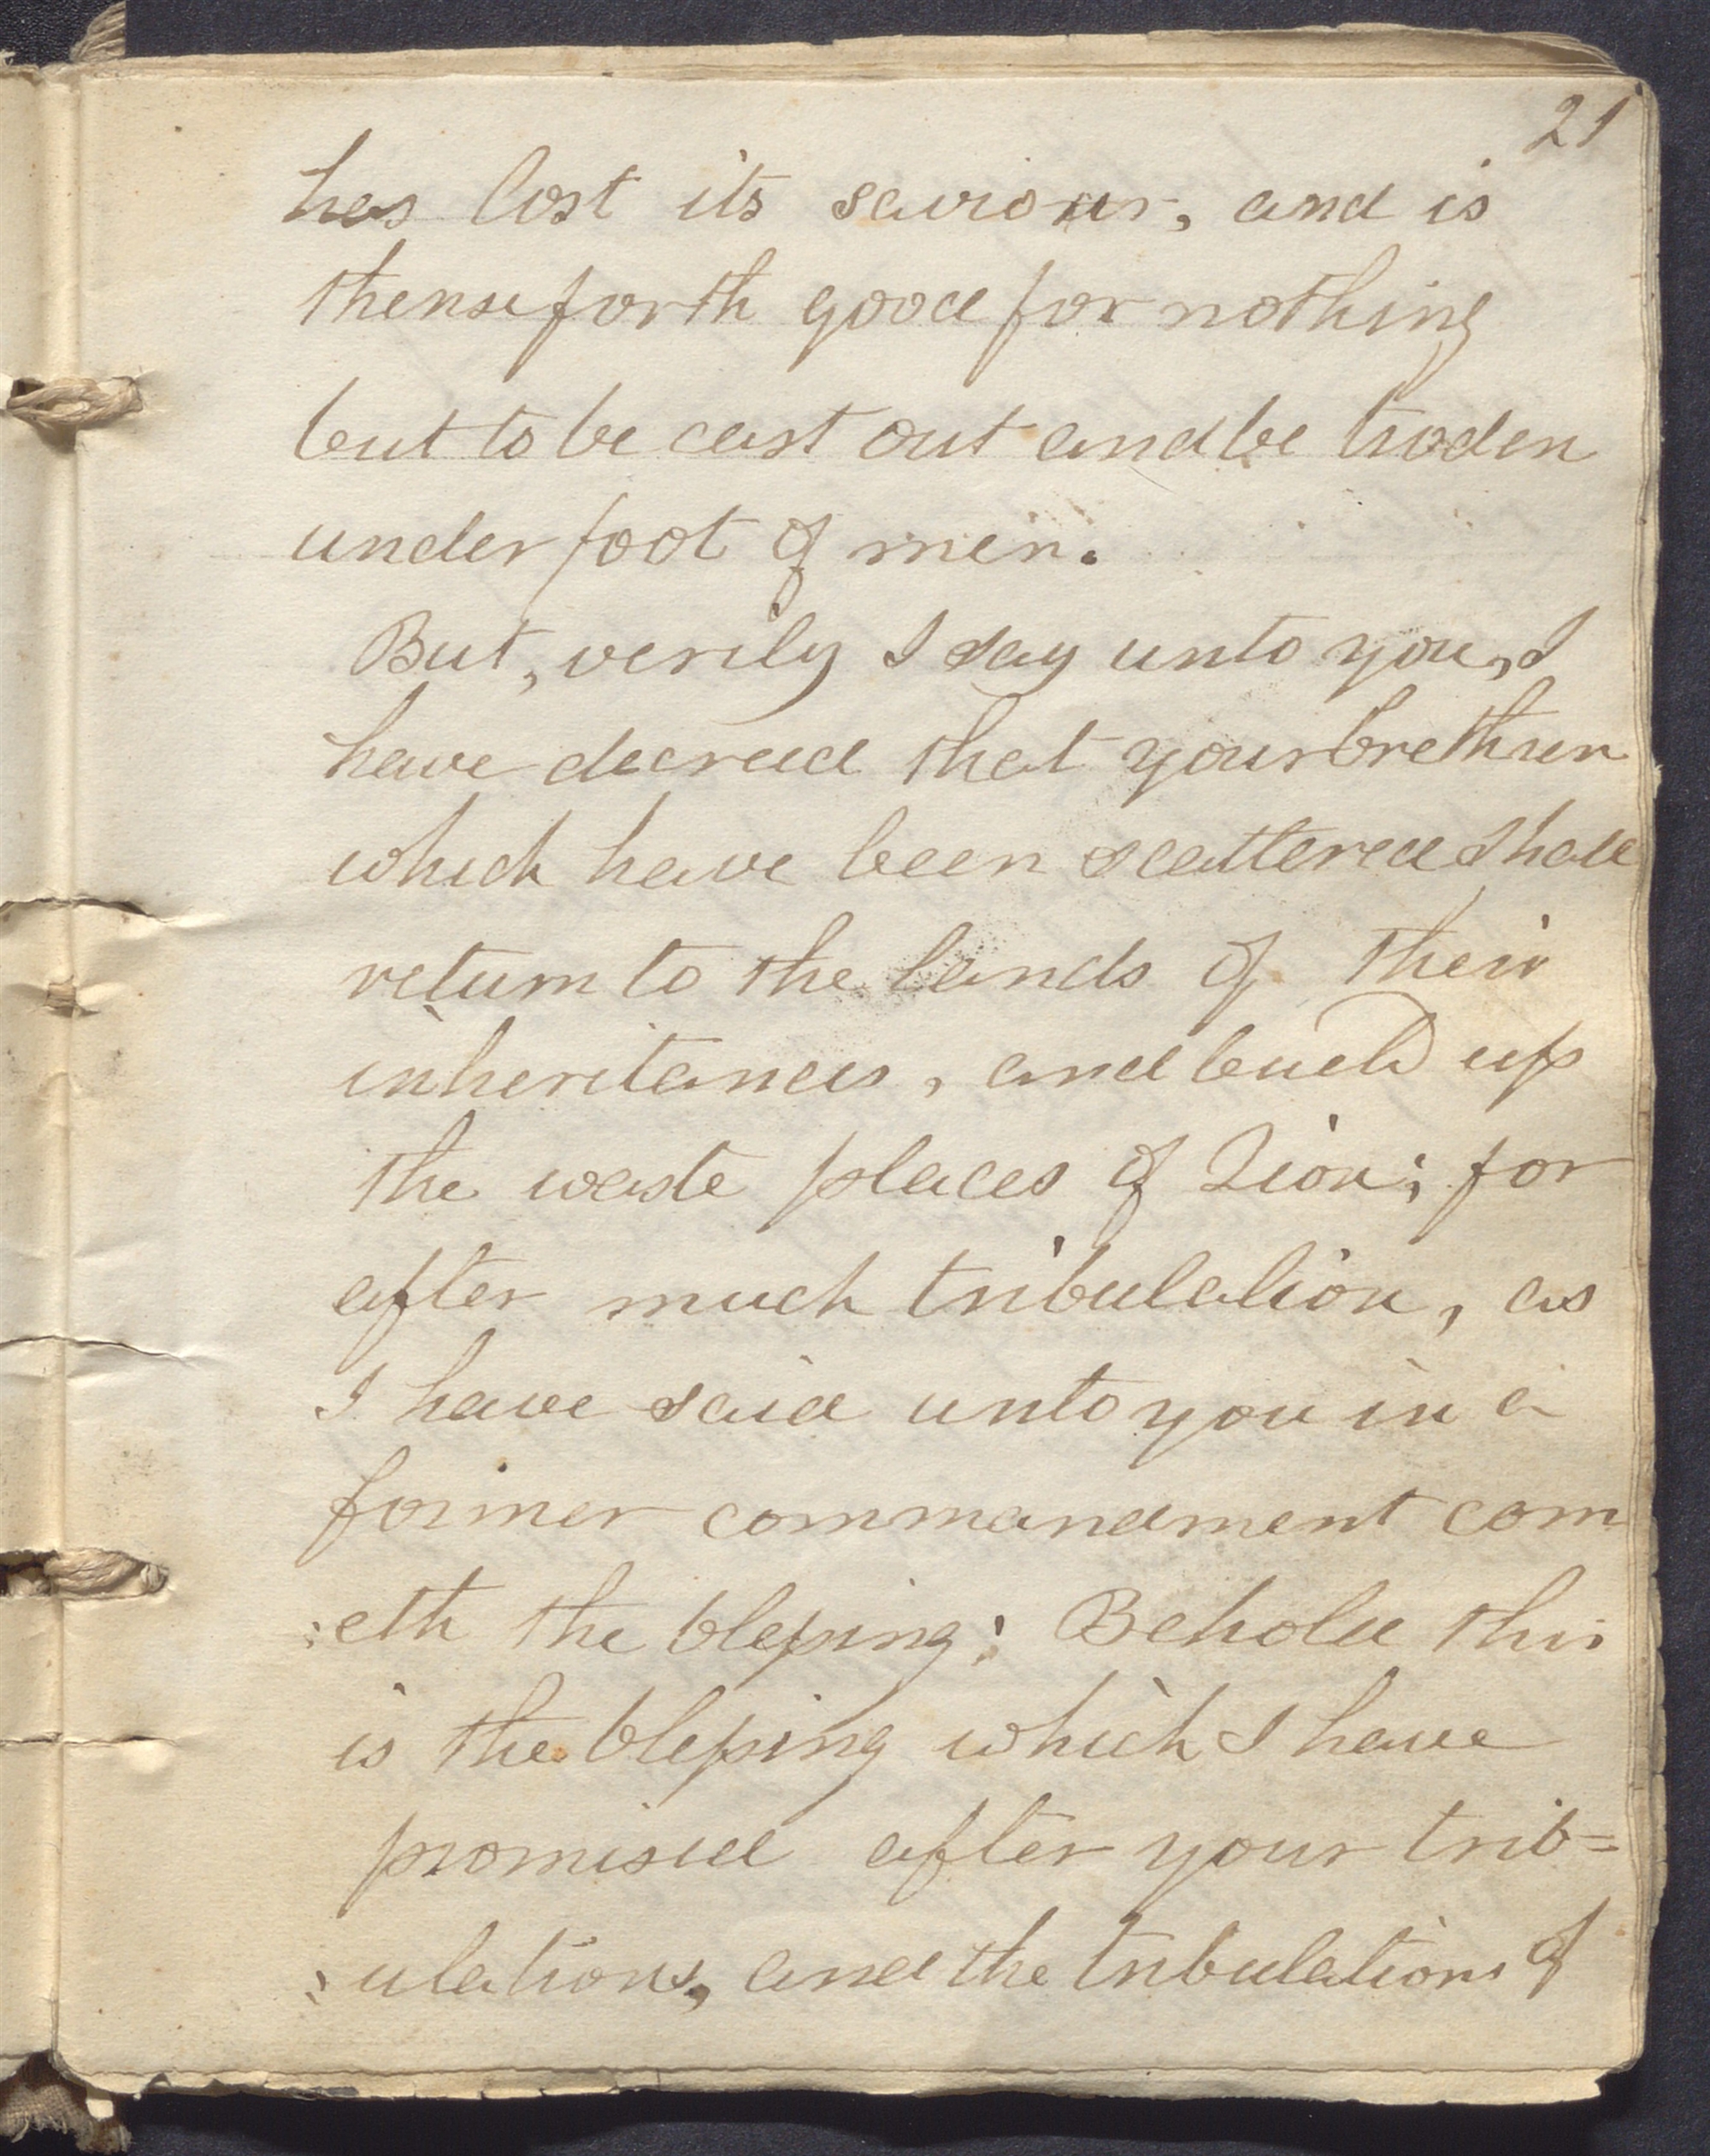 21
has lost its saviour, and is
thenseforth good for nothing
but to be cast out and be troden
under foot of men.
But, verily I say unto you, I
have decreed that your brethren
which have been scattered shall
return to the lands of their
inheritances, and build up
the waste places of Zion; for
after much tribulation, as
I have said unto you in a
former commandment com
:eth the blessing; Behold this
is the blessing which I have
promised after your trib=
:ulations, and the tribulations of